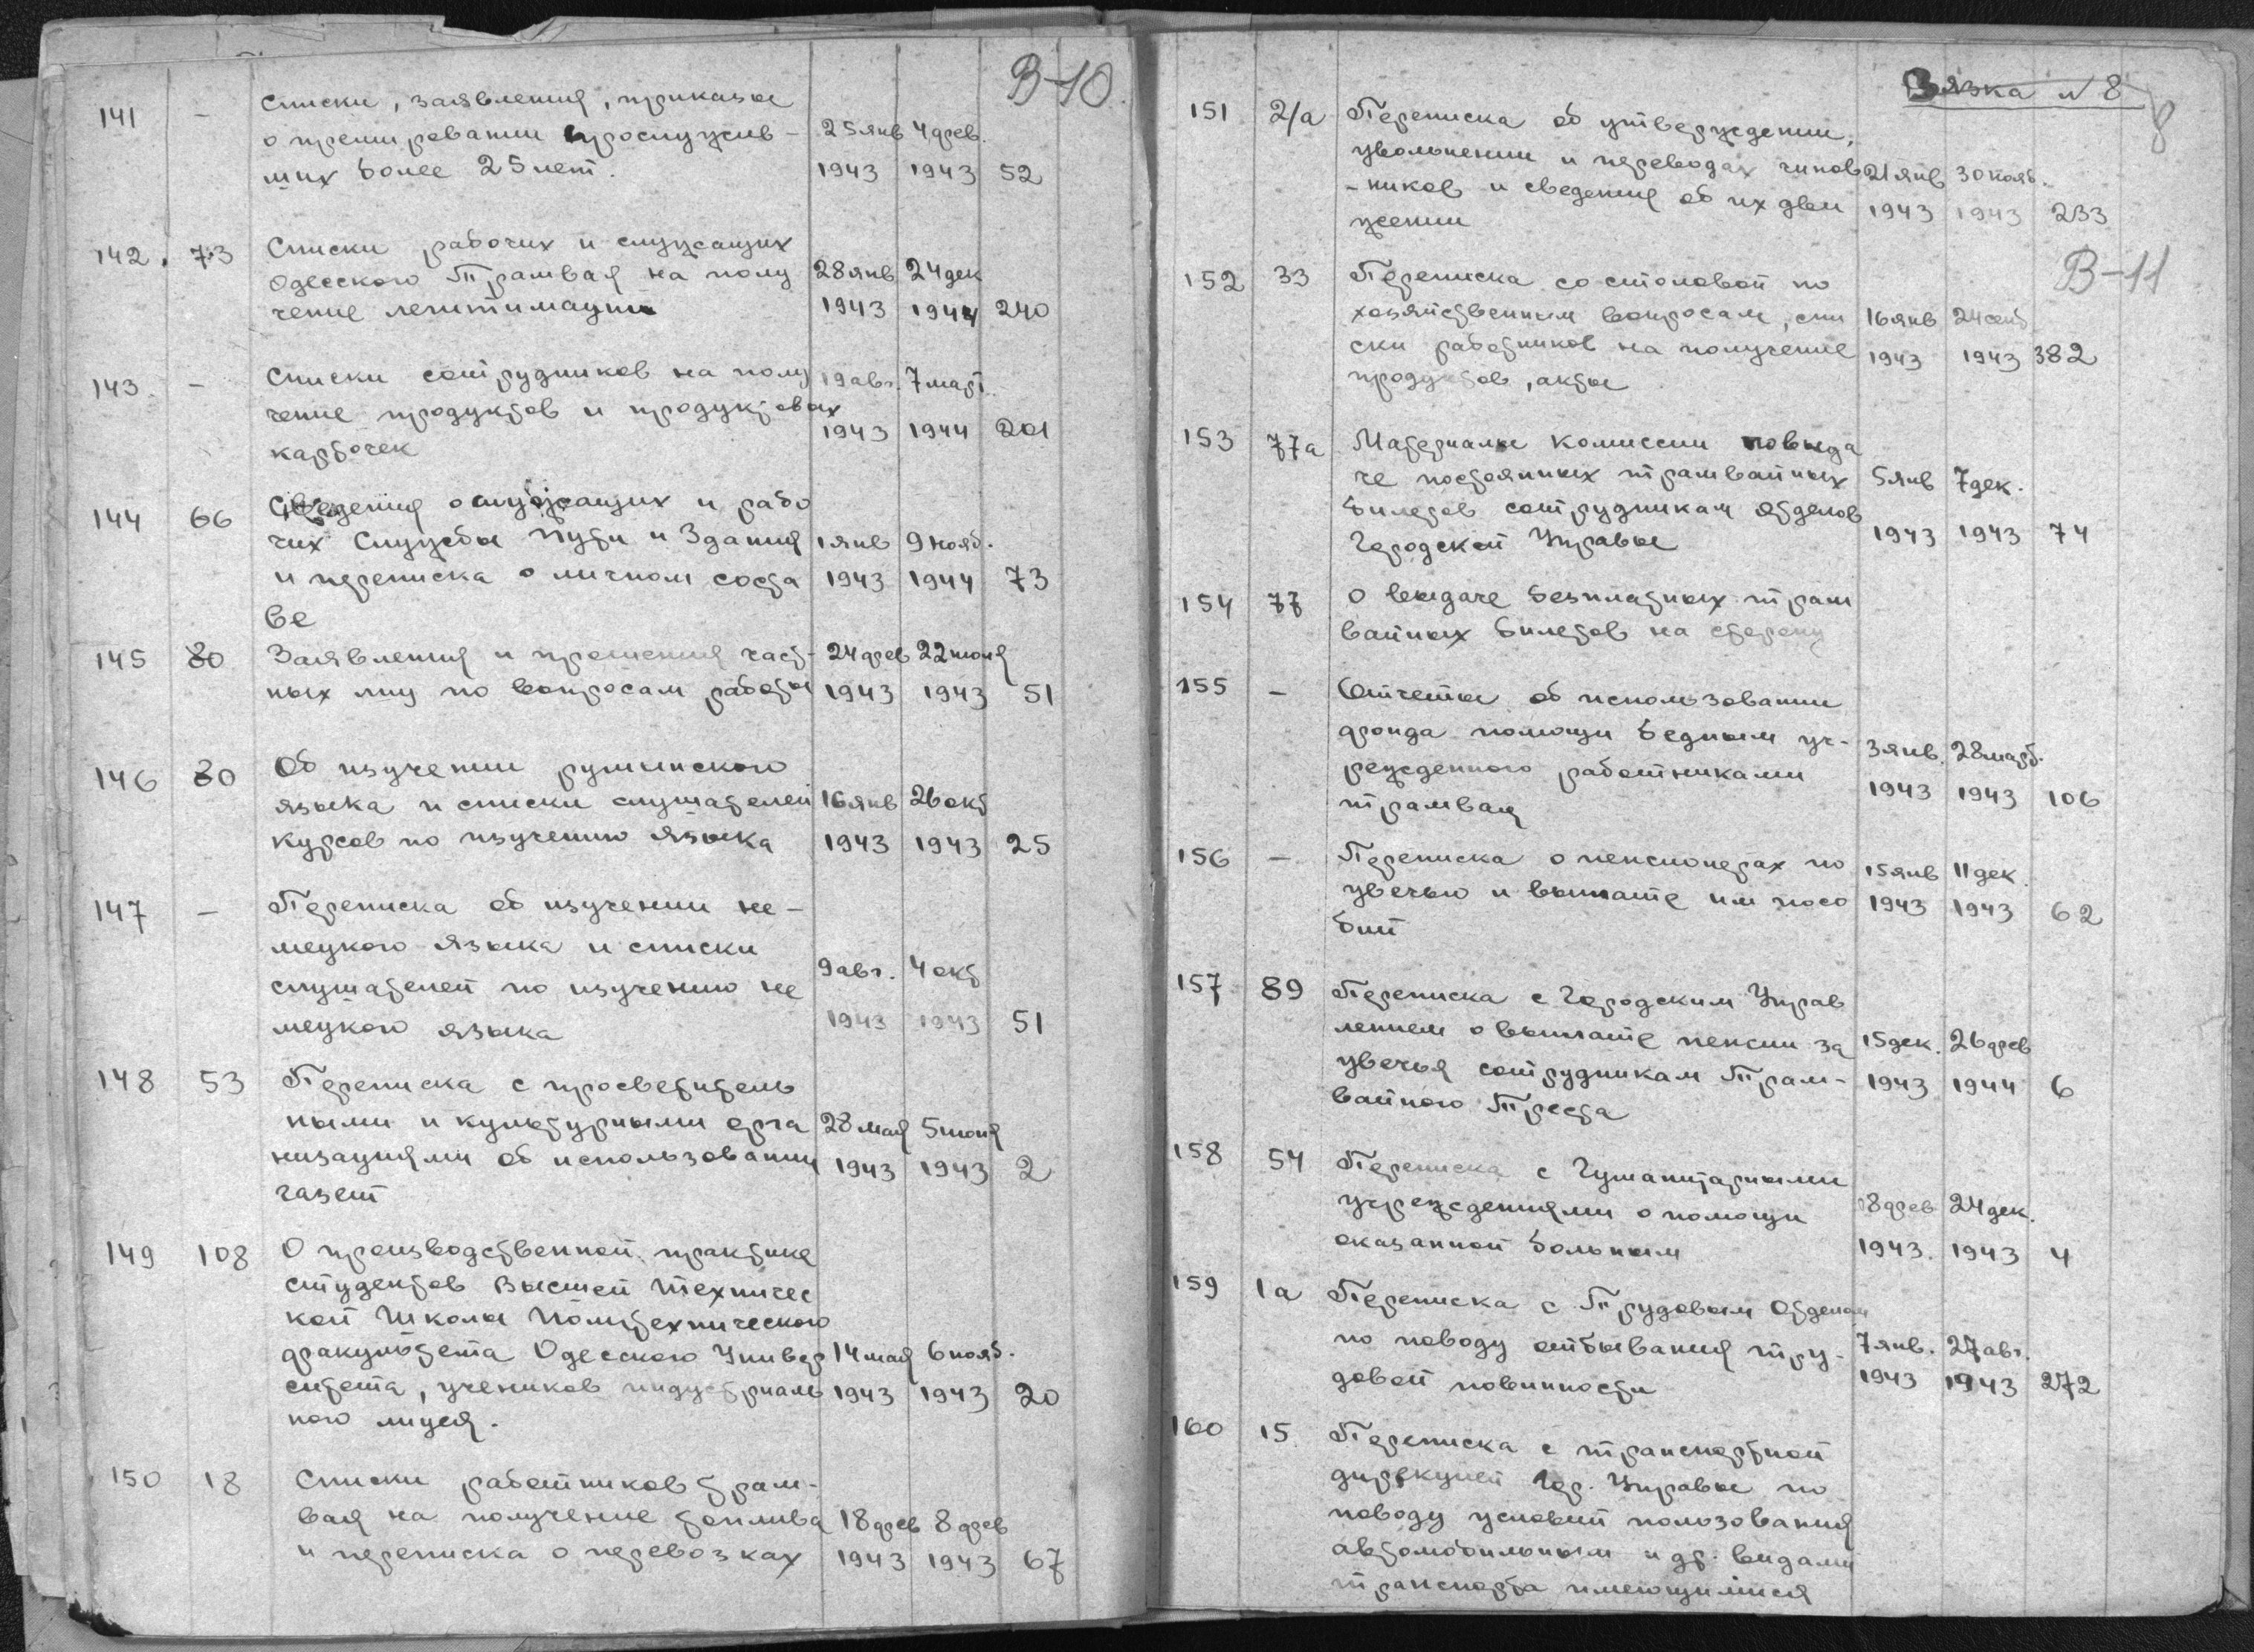 В-10.
141 – Списки, заявления, приказы
о премировании прослужив- 25 янв 4 фев.
ших более 25 лет. 1943 1943 52
142. 73 Списки рабочих и служащих
Одесского Трамвая на полу 28 янв 24 дек
чение легитимации 1943 1944 240
143 – Списки сотрудников на полу 19 авг. 7 март.
чение продуктов и продуктовых
карточек 1943 1944 201
144 66 Сведения о служащих и рабо
чих Службы Пути и Здания 1 янв 9 нояб.
и переписка о личном соста 1943 1944 73
ве
145 80 Заявления и прошения част- 24 фев 22 июня
ных лиц по вопросам работы 1943 1943 51
146 80 Об изучении румынского
языка и списки слушателей 16 янв 26 окт
курсов по изучению языка 1943 1943 25
147 – Переписка об изучении не-
мецкого языка и списки
слушателей по изучению не 9 авг. 4 окт
мецкого языка 1943 1943 51
148 53 Переписка с просветитель
ными и культурными орга 28 мая 5 июня
низациями об использовании 1943 1943 2
газет
149 108 О производственной практике
студентов Высшей Техничес
кой Школы Политехнического
факультета Одесского Универ 14 мая 6 нояб.
ситета, учеников индустриаль 1943 1943 20
ного лицея.
150 18 Списки работников трам-
вая на получение топлива 18 фев 8 фев
и переписка о перевозках 1943 1943 67
Вязка № 8
8
151 2/а Переписка об утверждении,
увольнении и переводах чинов 21 янв 30 нояб.
-ников и сведения об их дви 1943 1943 233
жении
В-11
152 33 Переписка со столовой по
хозяйственным вопросам, спи 16 янв 24 сент
ски работников на получение 1943 1943 382
продуктов, акты
153 77а Материалы комиссии по выда
че постоянных трамвайных 5 янв 7 дек.
билетов сотрудникам отделов
Городской Управы 1943 1943 74
154 77 О выдаче безплатных трам
вайных билетов на сторону
155 – Отчеты об использовании
фонда помощи бедным уч- 3 янв. 28 март.
режденного работниками
трамвая 1943 1943 106
156 – Переписка о пенсионерах по 15 янв 11 дек.
увечью и выплате им посо 1943 1943 62
бий
157 89 Переписка с Городским Управ
лением о выплате пенсии за 15 дек. 26 фев
увечья сотрудникам Трам- 1943 1944 6
вайного Треста
158 54 Переписка с Гуманитарными
учреждениями о помощи 8 фев 24 дек.
оказанной больным 1943. 1943 4
159 1а Переписка с Трудовым Отделом
по поводу отбывания тру- 7 янв. 27 авг.
довой повинности 1943 1943 272
160 15. Переписка с транспортной
дирекцией Гор. Управы по
поводу условий ползования
автомобильным и др. видами
транспорта имеющимися